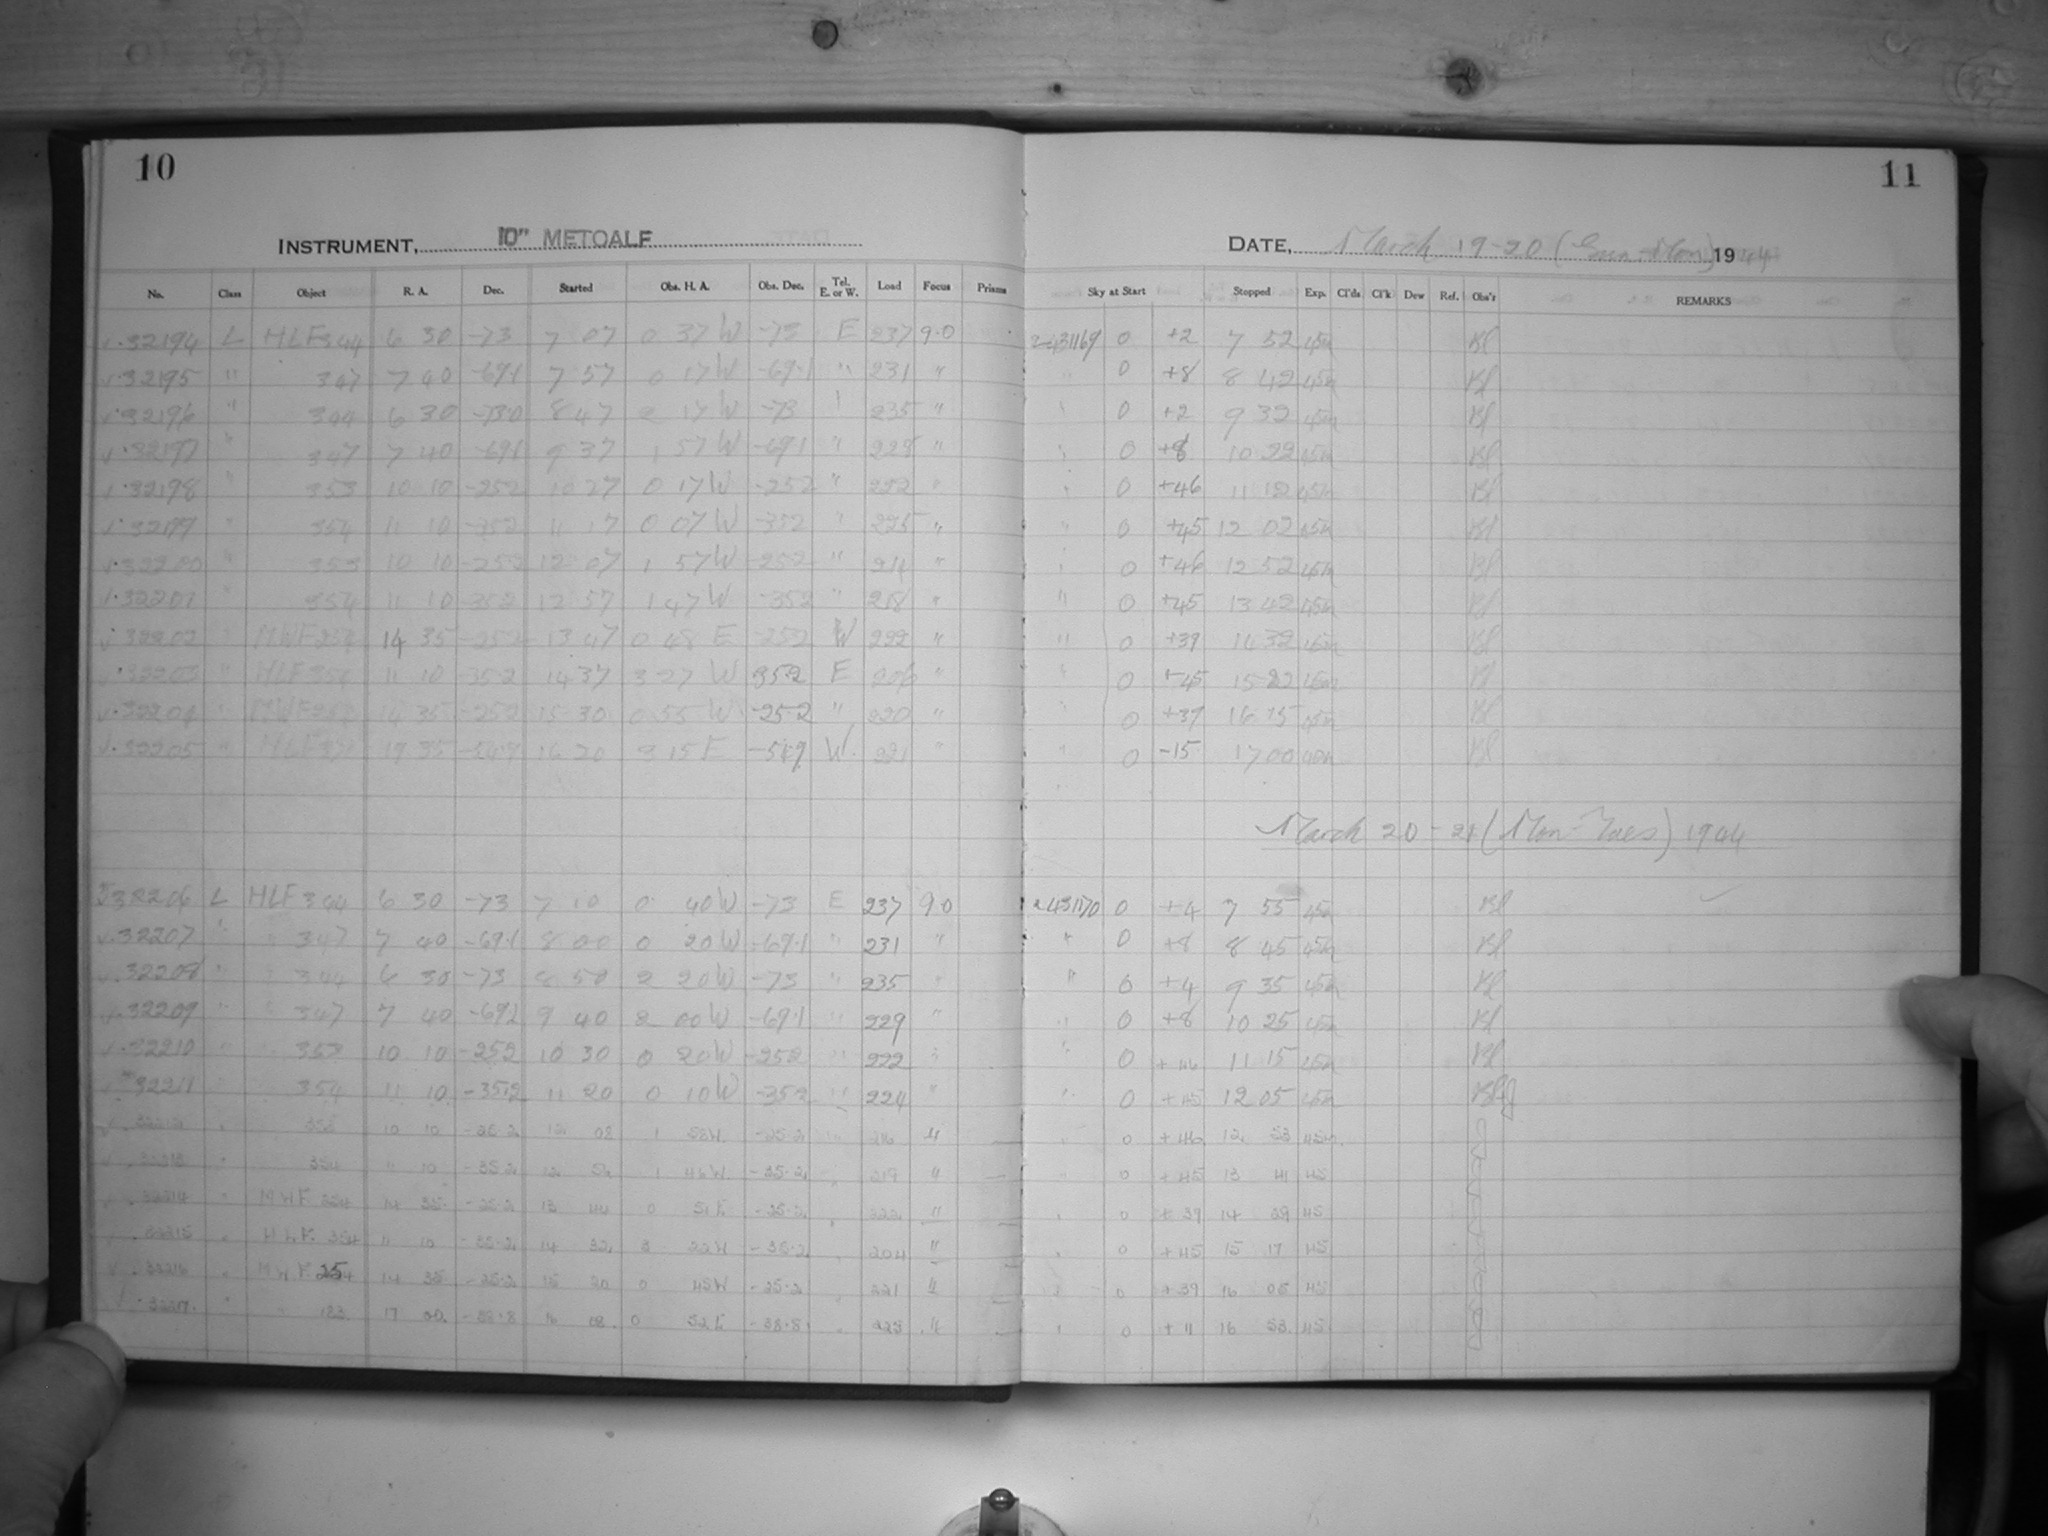 10
11
INSTRUMENT, 10" METCALF
DATE, March 19-20 (Sun-Mon) 1944
No. Class Object R. A. Dec. Started Obs. H. A. Obs. Dec. Tel. E. or W. Load Focus Prisms Sky at Start Stopped Exp. Cl'ds Cl'k Dew Ref. Obs'r REMARKS
32194 L HLF 344 6 30 -73 7 07 0 37 W -73 E 237 9.0 2431169 0 +2 7 52 45m Bl
32195 " 347 7 40 -69.1 7 57 0 17 W -69.1 " 231 " " 0 +8 8 42 45m Bl
32196 " 344 6 30 -73.0 8 47 2 17 W -73 " 235 " " 0 +2 9 32 45m Bl
32197 " 347 7 40 -69.1 9 37 1 57 W -69.1 " 228 " " 0 +8 10 22 45m Bl
32198 " 353 10 10 -25.2 10 27 0 17 W -25.2 " 222 " " 0 +46 11 12 45m Bl
32199 " 354 11 10 -35.2 11 17 0 07 W -35.2 " 225 " " 0 +45 12 02 45m Bl
32200 " 353 10 10 -25.2 12 07 1 57 W -25.2 " 214 " " 0 +46 12 52 45m Bl
32201 " 354 11 10 -35.2 12 57 1 47 W -35.2 " 218 " " 0 +45 13 42 45m Bl
32202 " MWF 254 14 35 -25.2 13 47 0 48 E -25.2 W 222 " " 0 +39 14 32 45m Bl
32203 " HLF 354 11 10 -35.2 14 37 3 27 W 35.2 E 206 " " 0 +45 15 22 45m Bl
32204 " MWF 254 14 35 -25.2 15 30 0 55 W -25.2 " 220 " " 0 +39 16 15 45m Bl
32205 " HLF 19 35 16 20 3 15 E W. 221 " " 0 -15 17 00 40m Bl
March 20-21 (Mon-Tues) 1944
32206 L HLF 344 6 30 -73 7 10 0 40 W -73 E 237 9.0 2431170 0 +4 7 55 45m Bl
32207 " " 347 7 40 -69.1 8 00 0 20 W -69.1 " 231 " " 0 +8 8 45 45m Bl
32208 " " 344 6 30 -73 8 50 2 20 W -73 " 235 " " 0 +4 9 35 45m Bl
32209 " " 347 7 40 -69.1 9 40 2 00 W -69.1 " 229 " " 0 +8 10 25 45m Bl
32210 " " 353 10 10 -25.2 10 30 0 20 W -25.2 " 222 " " 0 +46 11 15 45m Bl
32211 " 354 11 10 -35.2 11 20 0 10 W -35.2 " 224 " " 0 +45 12 05 45m
32212 " 353 10 10 -25.2 12 08 1 58 W. -25.2 " 216 " " 0 +46 12 53 45m.
32213 " 354 11 10 -35.2 12 56 1 46 W. -35.2 " 219 " " 0 +45 13 41 45
32214 " MWF 254 14 35 -25.2 13 44 0 51 E -25.2 " 222 " " 0 +39 14 29 45
32215 " HLF 354 11 10 -35.2 14 32 3 22 W -35.2 " 204 " " 0 +45 15 17 45
32216 " MWF 254 14 35 -25.2 15 20 0 45 W -25.2 " 221 " " 0 +39 16 05 45
32217 " " 17 00 -38.8 16 08 0 52 E -38.8 " 223 " " 0 +11 16 53 45